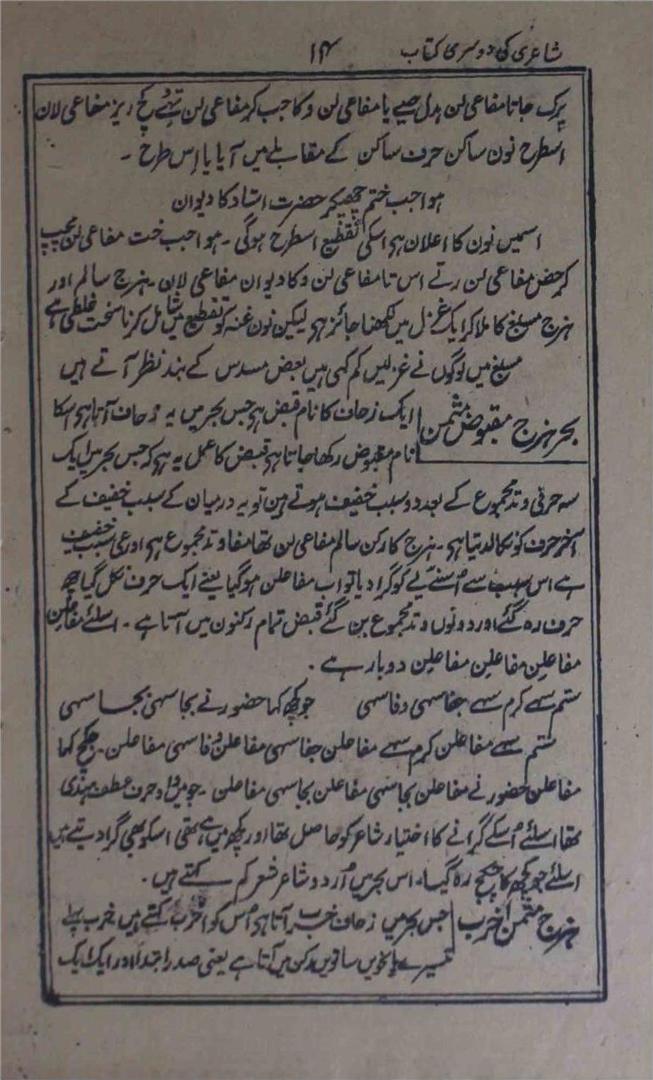 شاعری کی دوسری کتاب ۱۴
پرک جاتا مفاعی لن بدل جیسے یا مفاعی لن وکا جب کر مفاعی لن تہے کچ ریز مفاعی لان
اسطرح نون ساکن حرف ساکن کے مقابلے میں آیا یا اس طرح ۔
ہوا جب ختم چھپکر حضرت استاد کا دیوان
اسمیں نون کا اعلان ہی اسکی تقطیع اسطرح ہوگی ۔ ہوا جب خت مفاعی لن مچپ
کر حض مفاعی لن رتے اس تا مفاعی لن وکا دیوان مفاعی لان ۔ ہزج سالم اور
ہزج مسبغ کا ملا کر ایک غزل میں لکھنا جائز ہی لیکن نون غنہ کو تقطیع میں شامل کرنا سخت غلطی ہے
مسبغ میں لوگوں نے غزلیں کم کہی ہیں بعض مسدس کے بند نظر آتے ہیں
بحر ہزج مقبوض مثمن ایک زحاف کا نام قبض ہی جس بحر میں یہ زحاف آتا ہی اسکا
نام مقبوض رکھا جاتا ہی قبض کا عمل یہ ہی کہ جس بحر میں ایک
سہ حرفی وتد مجموع کے بعد دو سبب خفیف ہوتے ہین تو یہ درمیان کے سبب خفیف کے
آخر حرف کو نکالدیتا ہی ۔ ہزج کا رکن سالم مفاعی لن تھا مفا وتد مجموع ہی اور عی سبب خفیف
ہے اس سبب سے اُسنے لے کو گرا دیا تو اب مفاعلن ہو گیا یعنے ایک حرف نکل گیا چھ
حرف رہ گئے اور دونوں وتد مجموع بن گئے قبض تمام رکنون میں آتا ہے ۔ اسلئے مفاعلن
مفاعلن مفاعلن مفاعلن دو بار ہے ۔
ستم سہے کرم سہے جفا سہی وفا سہی جو کچھ کہا حضور نے بجا سہی بجا سہی
ستم سہے مفاعلن کرم سہے مفاعلن جفا سہی مفاعلن وفا سہی مفاعلن ۔ جکچ کہا
مفاعلن حضور نے مفاعلن بجا سہی مفاعلن بجا سہی مفاعلن ۔ جو میں واو حرف عطف ہندی
تھا اسلئے اُسکے گرانے کا اختیار شاعر کو حاصل تھا اور کچھ میں ہے تھی اسکو بھی گرا دیتے ہیں
اسلئے جو کچھ کا جکچ رہ گیا ۔ اس بحر میں اُردو شاعر شعر کم کہتے ہیں ۔
ہزج مثمن اخرب جس بحر میں زحاف خرب آتا ہی اُس کو اخرب کہتے ہیں خرب پہلے
تیسرے پانچویں ساتویں رکن میں آتا ہے یعنی صدر ابتدا اور ایک ایک